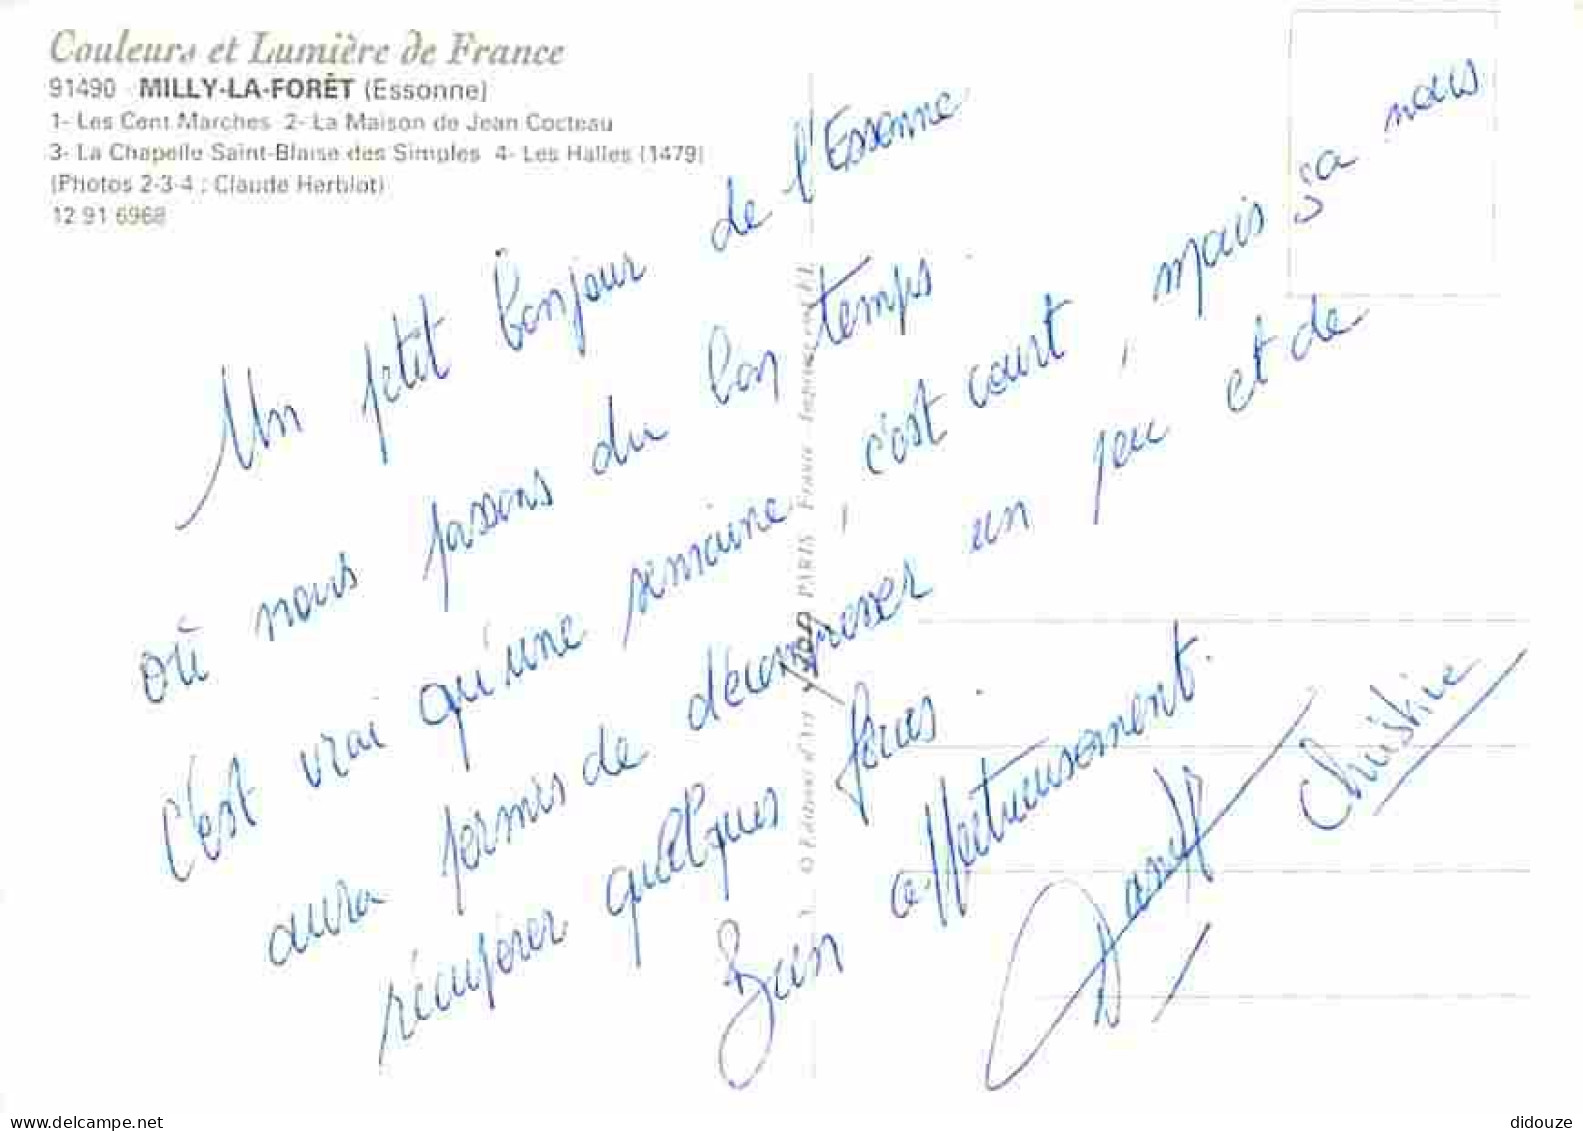 Couleurs et Lumière de France
91490 - MILLY-LA-FORÊT (Essonne)
1- Les Cent Marches 2- La Maison de Jean Cocteau
3- La Chapelle Saint-Blaise des Simples 4- Les Halles (1479)
(Photos 2-3-4 : Claude Herblot)
12 91 6968
Un petit bonjour de l'Essonne
où nous passons du bon temps.
C'est vrai qu'une semaine, c'est court, mais ça nous
aura permis de décompresser un peu et de
récupérer quelques forces.
Bien affectueusement.
Christine
© Editions d'art PARIS France - Imprimé en